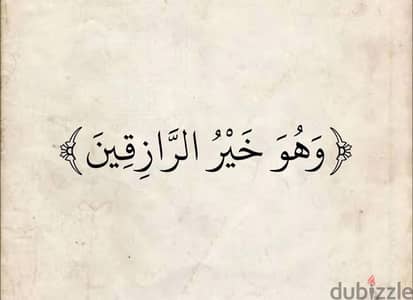 ﴿وَهُوَ خَيْرُ الرَّازِقِينَ﴾
dubizzle